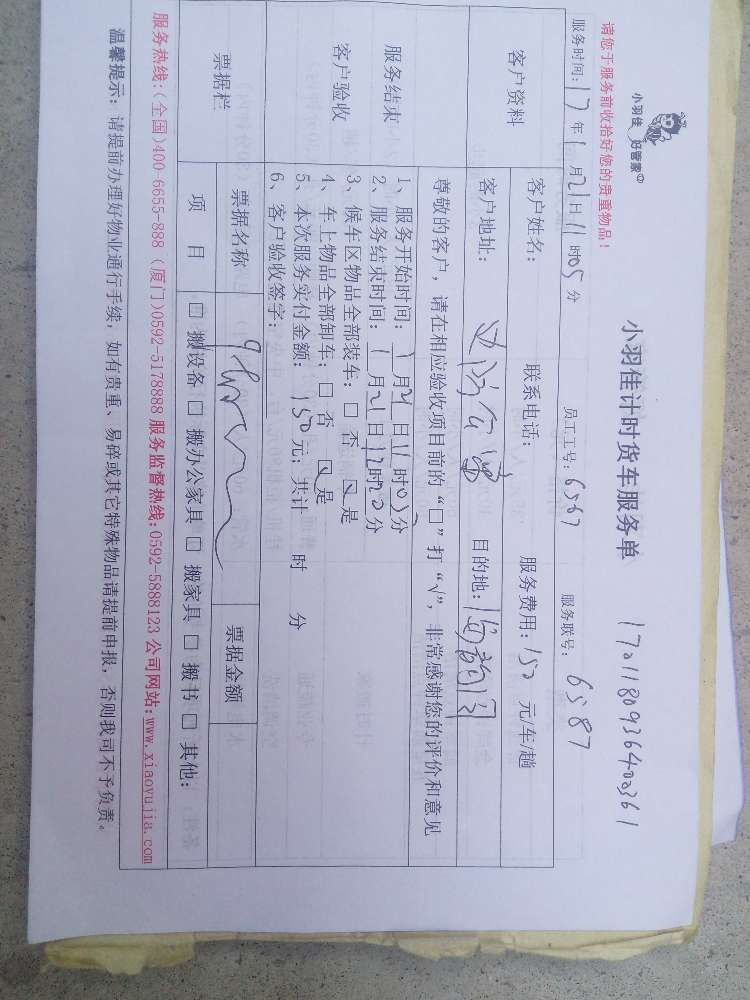 小羽佳 好管家
小羽佳计时货车服务单
请您于服务前收拾好您的贵重物品！
服务时间：17年1月21日11时05分 员工工号：6567 服务联号：6587
客户资料
客户姓名： 联系电话： 服务费用：150 元/车/趟
客户地址： 目的地：
服务结束
客户验收
尊敬的客户，请在相应验收项目前的“□”打“√”，非常感谢您的评价和意见
1、服务开始时间：1月21日11时05分
2、服务结束时间：1月21日12时20分
3、候车区物品全部装车：□ 否 ☑ 是
4、车上物品全部卸车：□ 否 ☑ 是
5、本次服务实付金额：150元；共计 时 分
6、客户验收签字：
票据栏
票据名称 票据金额
项 目 □ 搬设备 □ 搬办公家具 □ 搬家具 □ 搬书 □ 其他：
服务热线:(全国)400-6655-888 (厦门)0592-5178888 服务监督热线:0592-5888123 公司网站:www.xiaoyujia.com
温馨提示：请提前办理好物业通行手续，如有贵重、易碎或其它特殊物品请提前申报，否则我司不予负责。